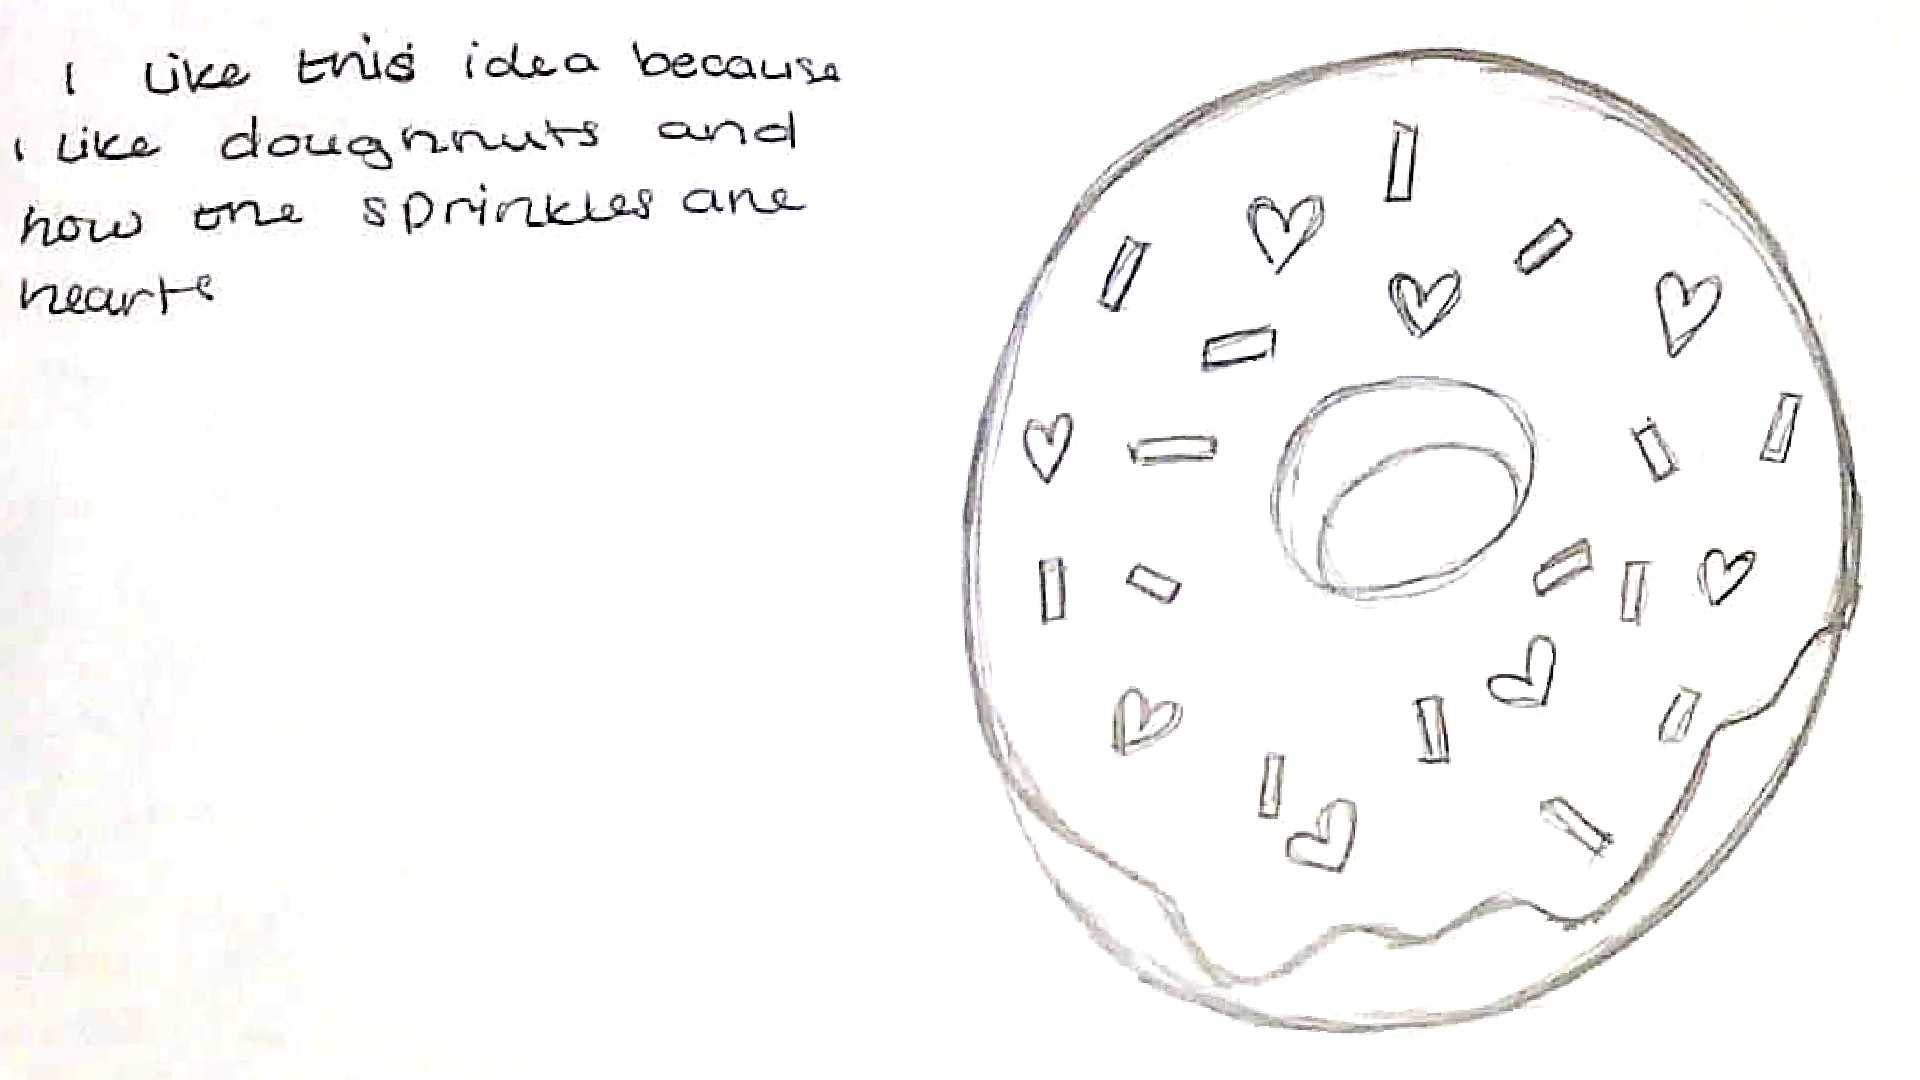 I like this idea because
I like doughnuts and
how the sprinkles are
hearts